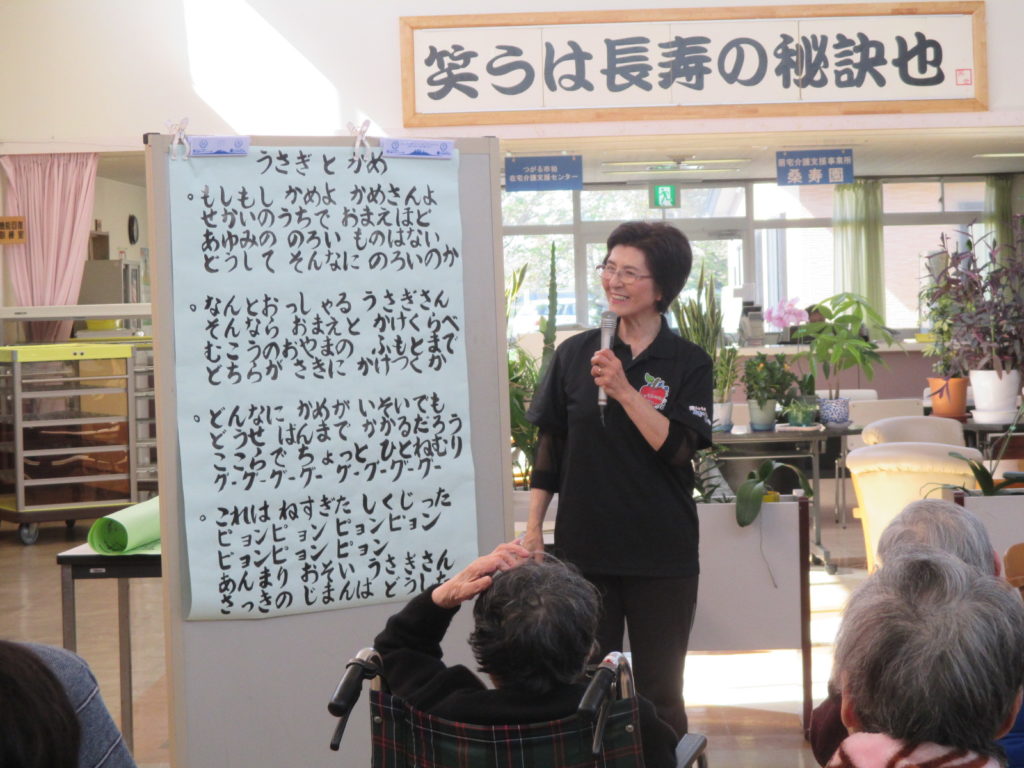 笑うは長寿の秘訣也
つがる市協
在宅介護支援センター
居宅介護支援事業所
桑寿園
うさぎとかめ
もしもし かめよ かめさんよ
せかいのうちで おまえほど
あゆみの のろい ものはない
どうして そんなに のろいのか
なんとおっしゃる うさぎさん
そんなら おまえと かけくらべ
むこうのおやまの ふもとまで
どちらが さきに かけつくか
どんなに かめが いそいでも
どうせ ばんまで かかるだろう
ここらで ちょっと ひとねむり
グーグーグーグー グーグーグーグー
これは ねすぎた しくじった
ピョンピョン ピョンピョン
ピョンピョン ピョン
あんまり おそい うさぎさん
さっきの じまんは どうした